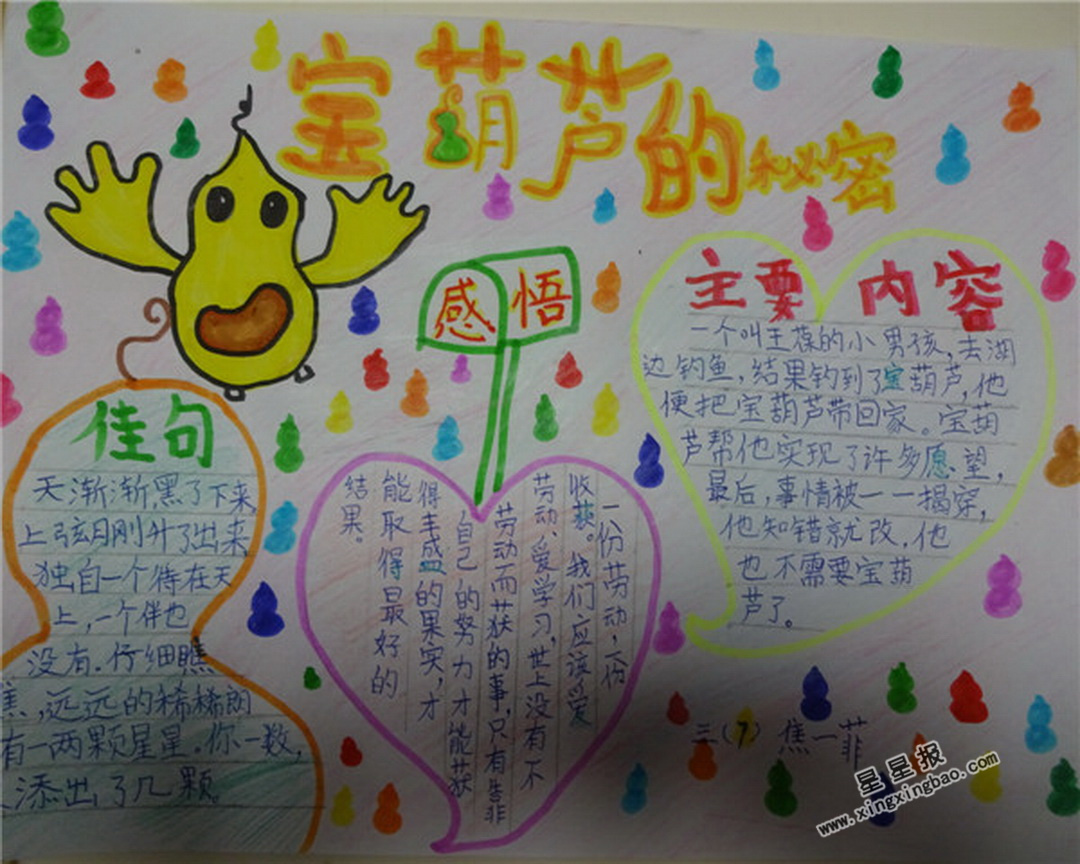 宝葫芦的秘密
主要内容
一个叫王葆的小男孩，去湖
边钓鱼，结果钓到了宝葫芦，他
便把宝葫芦带回家。宝葫
芦帮他实现了许多愿望，
最后，事情被一一揭穿，
他知错就改，他
也不需要宝葫
芦了。
感悟
一份劳动，一份
收获。我们应该爱
劳动、爱学习，世上没有不
劳动而获的事，只有靠
自己的努力才能获
得丰盛的果实，才
能取得最好的
结果。
佳句
天渐渐黑了下来
上弦月刚升了出来
独自一个待在天
上，一个伴也
没有.仔细瞧
焦，远远的稀稀朗
有一两颗星星.你一数，
添出了几颗。
三(7) 焦一菲
星星报
www.xingxingbao.com